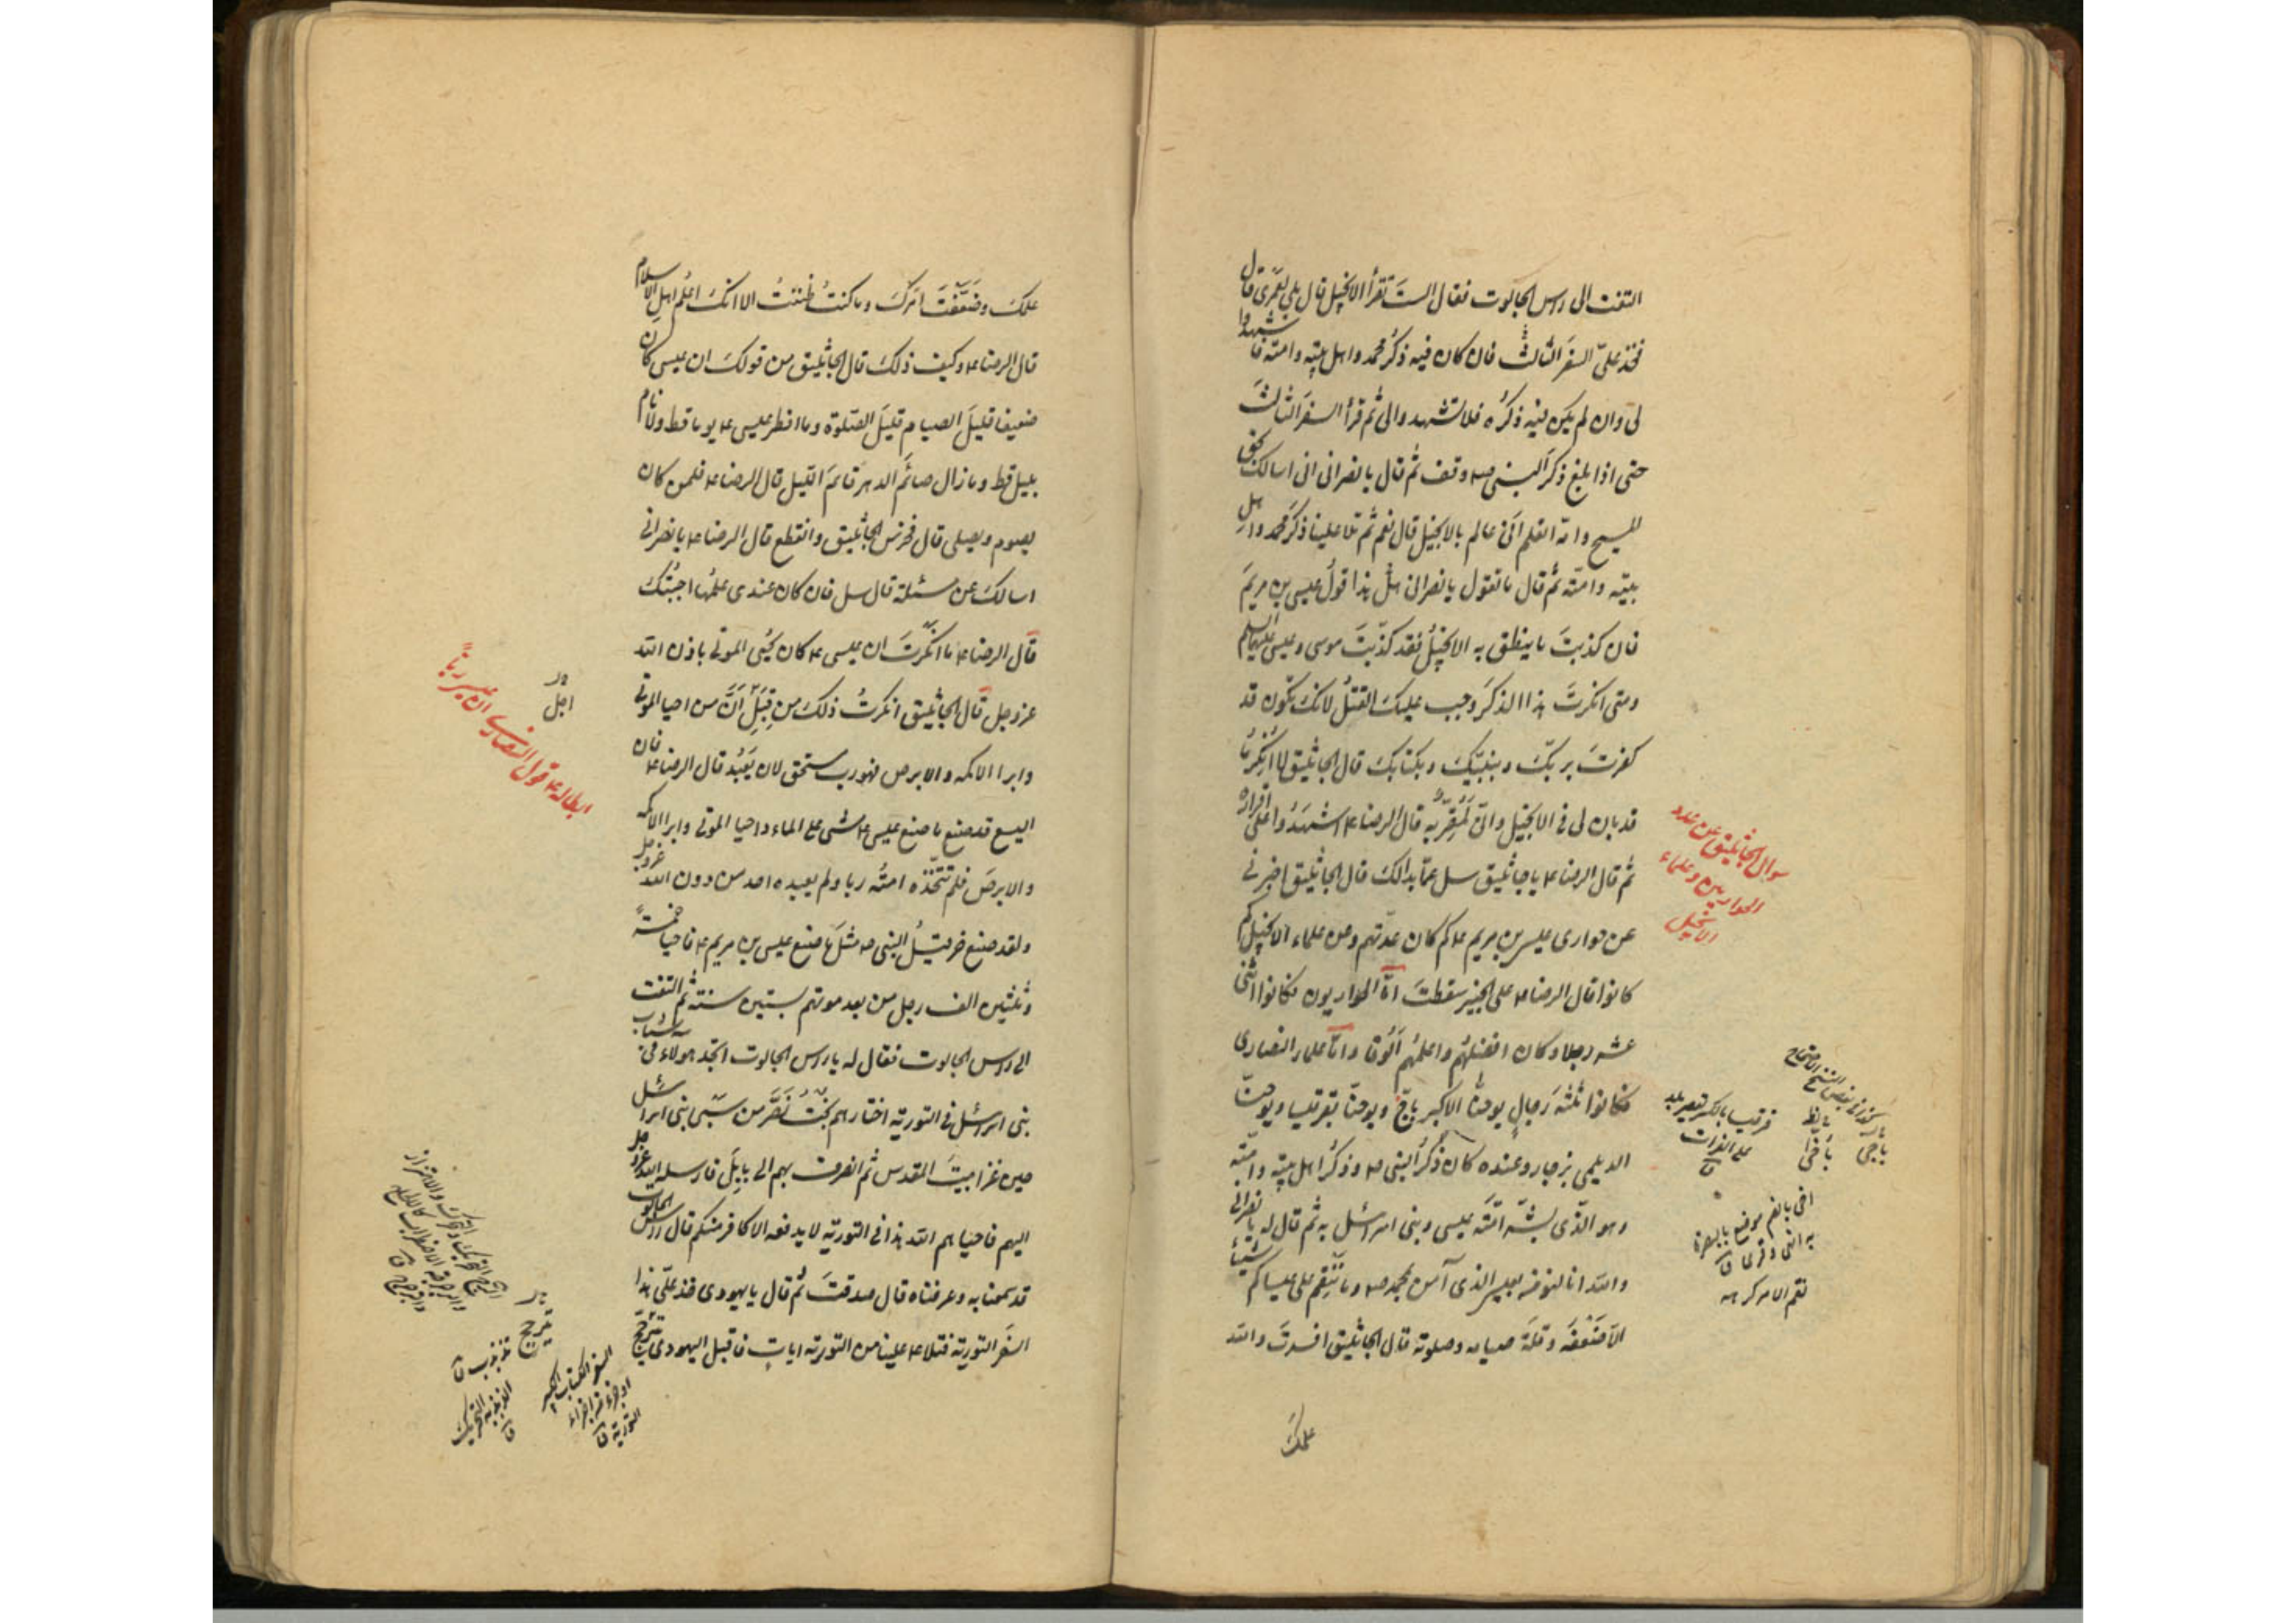 التفت الى راس الجالوت فقال الستَ تقرأ الانجيل قال بلى لعمرى قال
فخذ علىّ السفرَ الثالثَ فان كان فيه ذكرُ محمد واهل بيته وامته فاشهدوا
لى وان لم يكن فيه ذكرُه فلا تشهدوا لى ثم قرأ السفرَ الثالثَ
حتى اذا بلغ ذكرَ النبى ص وقف ثم قال يا نصرانى انى اسالك بحق
المسيح وامه اتعلم انى عالم بالانجيل قال نعم ثم تلا علينا ذكرَ محمد واهل
بيته وامته ثم قال ما تقول يا نصرانى هذا قولُ عيسى بن مريمَ
فان كذبتَ ما ينطق به الانجيلُ فقد كذّبتَ موسى وعيسى عليهما السلم
ومتى انكرتَ هذا الذكرَ وجب عليك القتلُ لانك تكون قد
كفرتَ بربك وبنبيّك وبكتابك قال الجاثليق لا انكر ما
قد بان لى فى الانجيل وانى لمُقِرّ به قال الرضا ع اشهدوا على اقراره
ثم قال الرضا ع يا جاثليق سل عمّا بدا لك قال الجاثليق اخبرنى
عن حوارى عيسى بن مريم ع كم كان عدتهم وعن علماء الانجيل كم
كانوا قال الرضا ع على الخبير سقطتَ امّا الحواريون فكانوا اثنى
عشر رجلا وكان افضلُهم واعلمُهم اَلُوقا وامّا علماء النصارى
فكانوا ثلثةَ رجالٍ يوحنّا الاكبر باجّ ويوحنّا بقرقيسا ويوحنّا
الديلمى بزجار وعنده كان ذكرُ النبى ص وذكرُ اهل بيته وامّته
وهو الذى بشّر امّةَ عيسى وبنى اسرائيل به ثم قال له يا نصرانى
والله انا لنؤمن بعيسى الذى آمن بمحمد ص وما ننقم على عيساكم شيئا
الا ضَعفَه وقلةَ صيامه وصلوته قال الجاثليق افسدتَ والله
علمك
سؤال الجاثليق عن عدد
الحواريين وعلماء
الانجيل
قرقيسا بالكسر بلد
على الفرات
ق
نقم الامر كرهه
علمكَ وضَعّفتَ امرَك وما كنتُ ظننتُ الا انكَ اعلمُ اهلِ الاسلام
قال الرضا ع وكيف ذلك قال الجاثليق من قولك ان عيسى كان
ضعيفا قليلَ الصيام قليلَ الصلوة وما افطر عيسى ع يوما قط ولا نام
بليل قط وما زال صائمَ الدهر قائمَ الليل قال الرضا ع فلمن كان
يصوم ويصلى قال فخرس الجاثليق وانقطع قال الرضا ع يا نصرانى
اسالك عن مسئلة قال سل فان كان عندى علمُها اجبتُك
قال الرضا ع ما انكرتَ ان عيسى ع كان يُحيى الموتى باذن الله
عز وجل قال الجاثليق انكرتُ ذلك من قِبَلِ اَنّ من احيا الموتى
وابرا الاكمه والابرص فهو رب مستحق لان يُعبد قال الرضا ع فان
اليسع قد صنع ما صنع عيسى ع مشى على الماء واحيا الموتى وابرا الاكمه
والابرصَ فلم تتّخذه امتُه ربا ولم يعبده احد من دون الله عز وجل
ولقد صنع حزقيلُ النبى ص مثلَ ما صنع عيسى بن مريم ع فاحيا خمسةً
وثلثين الف رجل من بعد موتهم بستين سنة ثم التفت
الى راس الجالوت فقال له يا راس الجالوت اتجد هؤلاء فى شباب
بنى اسرائيل فى التورية اختارهم بُختُ نَصّر من سبى بنى اسرائيل
حين غزا بيتَ المقدس ثم انصرف بهم الى بابِلَ فارسله الله عز وجل
اليهم فاحياهم الله هذا فى التورية لا يدفعه الا كافر منكم قال راس الجالوت
قد سمعنا به وعرفناه قال صدقتَ ثم قال يا يهودى خذ علىّ هذا
السفرَ التورية فتلا ع علينا من التورية ايات فاقبل اليهودى يترجّح
اجل
ابطاله ع قول النصارى ان عيسى ربّاً
السفر الكتاب الكبير
او جزء من اجزاء
التورية ق